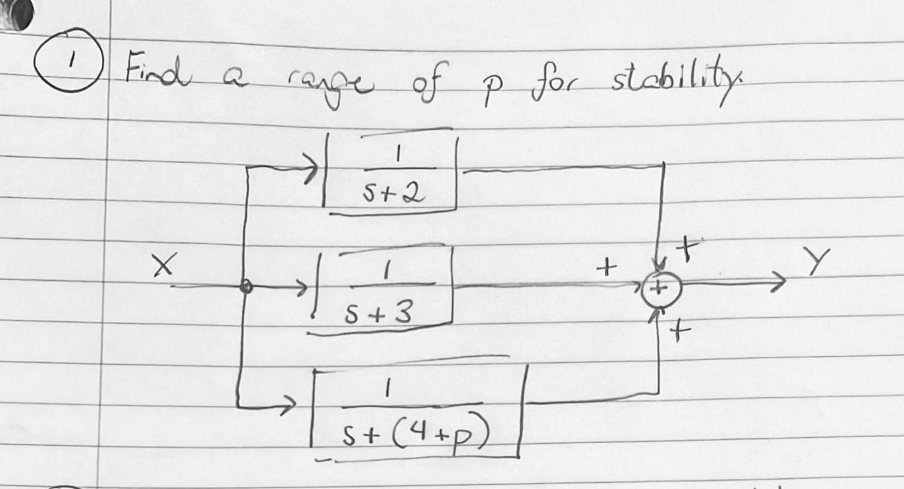 1 Find a range of p for stability.
1
s+2
X
1
s+3
+
+
+
Y
+
1
s+(4+p)